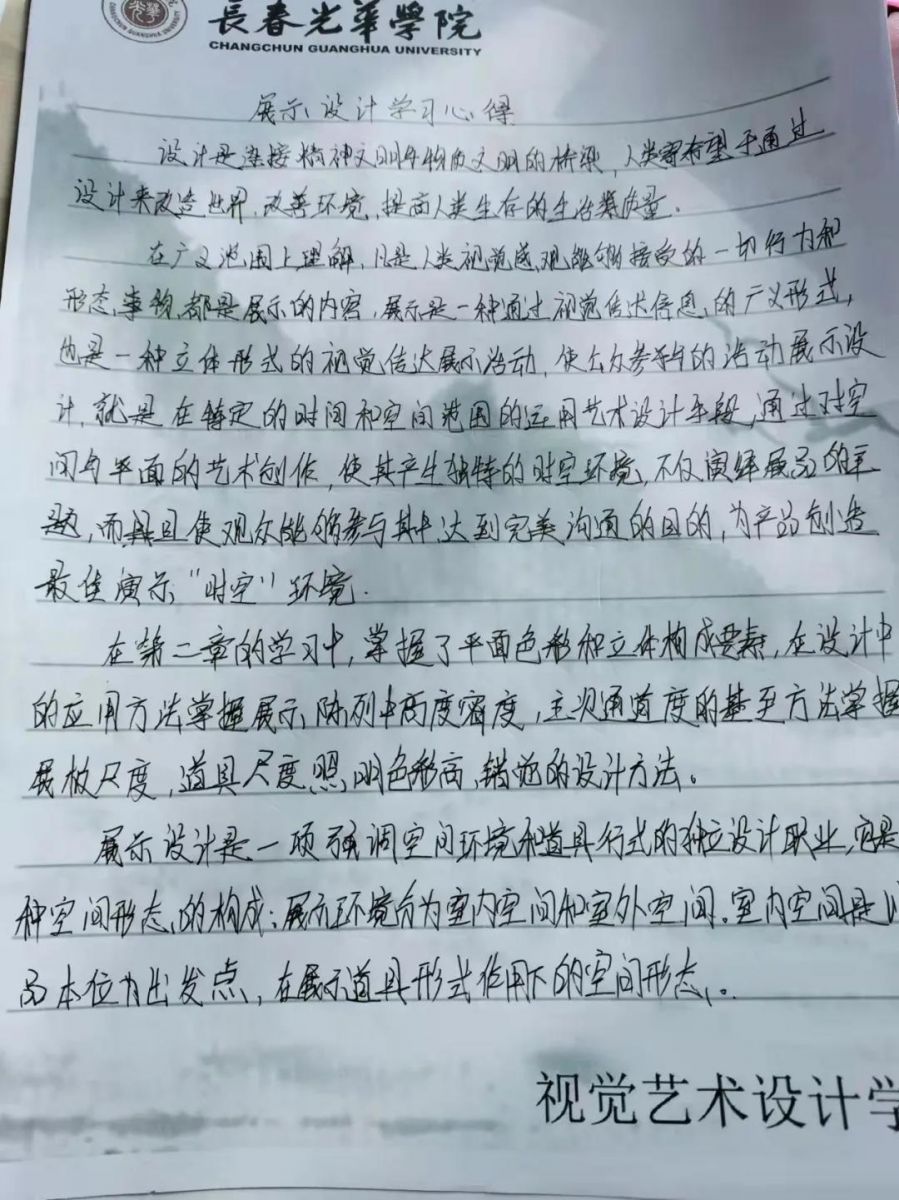 長春光華學院
CHANGCHUN GUANGHUA UNIVERSITY
展示设计学习心得
设计是连接精神文明与物质文明的桥梁,人类寄希望于通过
设计来改造世界,改善环境,提高人类生存的生活质量.
在广义范围上理解,凡是人类视觉感观能够接受的一切行为和
形态,事物,都是展示的内容,展示是一种通过视觉传达信息,的广义形式,
也是一种立体形式的视觉传达展示活动,使公众参与的活动展示设
计,就是在特定的时间和空间范围的运用艺术设计手段,通过对空
间与平面的艺术创作,使其产生独特的时空环境,不仅演绎展品的主
题,而且使观众能够参与其中,达到完美沟通的目的,为产品创造
最佳演示"时空"环境.
在第二章的学习中,掌握了平面色彩和立体构成要素,在设计中
的应用方法掌握展示,陈列中高度密度,主次通道度的基至方法掌握
展板尺度,道具尺度,照,明色彩高,错觉的设计方法。
展示设计是一项强调空间环境和道具行式的独立设计职业,它是
种空间形态,的构成;展示环境分为室内空间和室外空间。室内空间是以
品本位为出发点,在展示道具形式作用下的空间形态,。
视觉艺术设计学